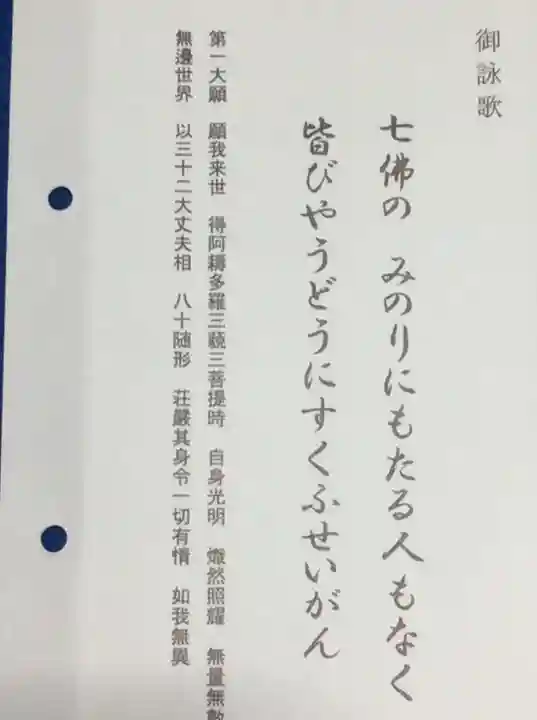 御詠歌
七佛の みのりにもたる人もなく
皆びやうどうにすくふせいがん
第一大願 願我来世 得阿耨多羅三藐三菩提時 自身光明 熾然照耀 無量無數
無邊世界 以三十二大丈夫相 八十随形 荘嚴其身令一切有情 如我無異